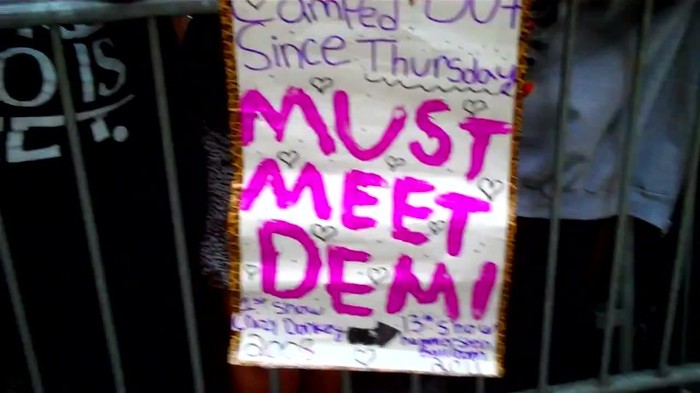 Camped Out
Since Thursday
MUST
MEET
DEMI
1st Show
Crazy Donkey
2008
13th Show
2011
IS